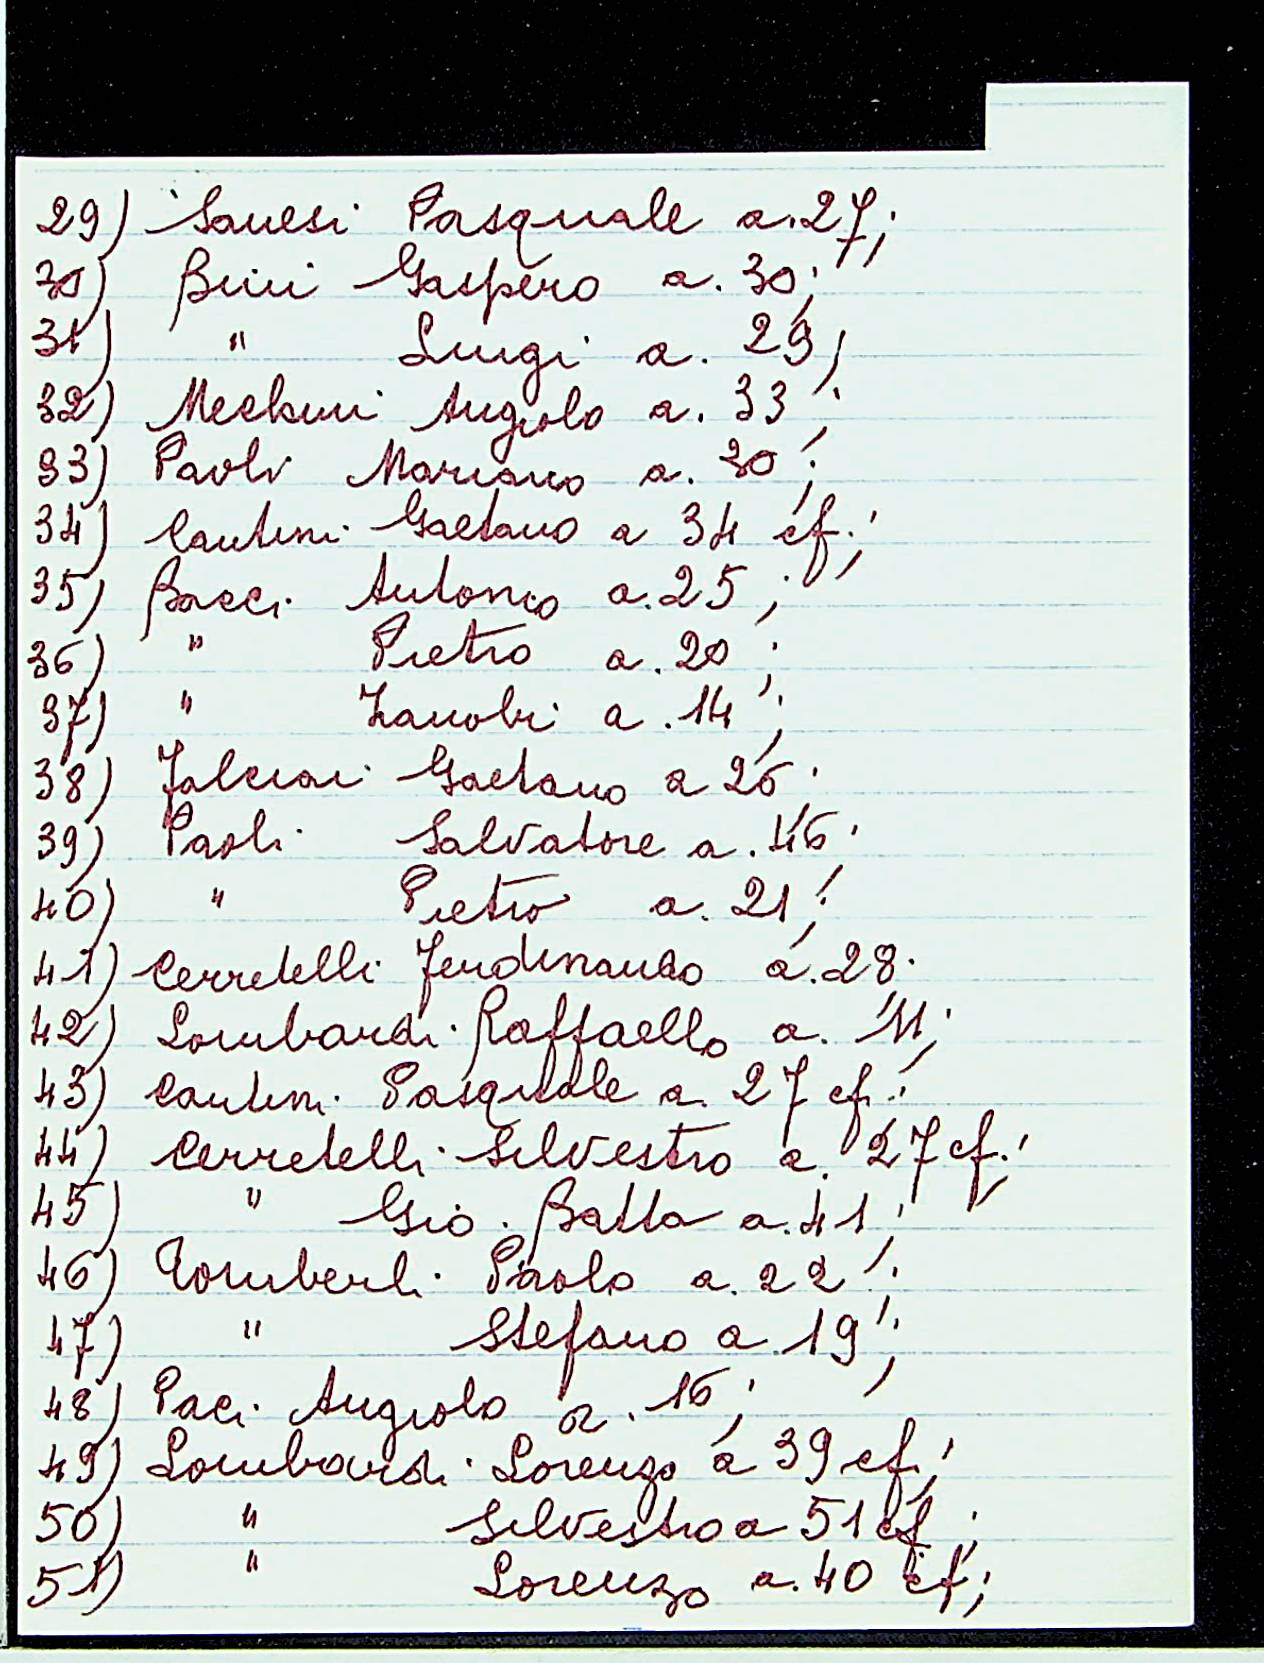 29) Sanesi Pasquale a. 27;
30) Bini Gaspero a. 30;
31) " Luigi a. 29;
32) Meckini Angiolo a. 33;
33) Paoli Mariano a. 30;
34) Cantini Gaetano a 34 cf.;
35) Bacci Antonio a. 25;
36) " Pietro a. 20;
37) " Zanobi a. 14;
38) Falciai Gaetano a 26;
39) Paoli Salvatore a. 46;
40) " Pietro a. 21;
41) Cerretelli Ferdinando a. 28.
42) Lombardi Raffaello a. 11;
43) Cantini Pasquale a. 27 cf.;
44) Cerretelli Silvestro a. 27 cf.;
45) " Gio. Batta a. 41;
46) Romberli Paolo a. 22;
47) " Stefano a. 19;
48) Paci Angiolo a. 16;
49) Lombardi Lorenzo a 39 cf.;
50) " Silvestro a 51 cf;
51) " Lorenzo a. 40 cf;